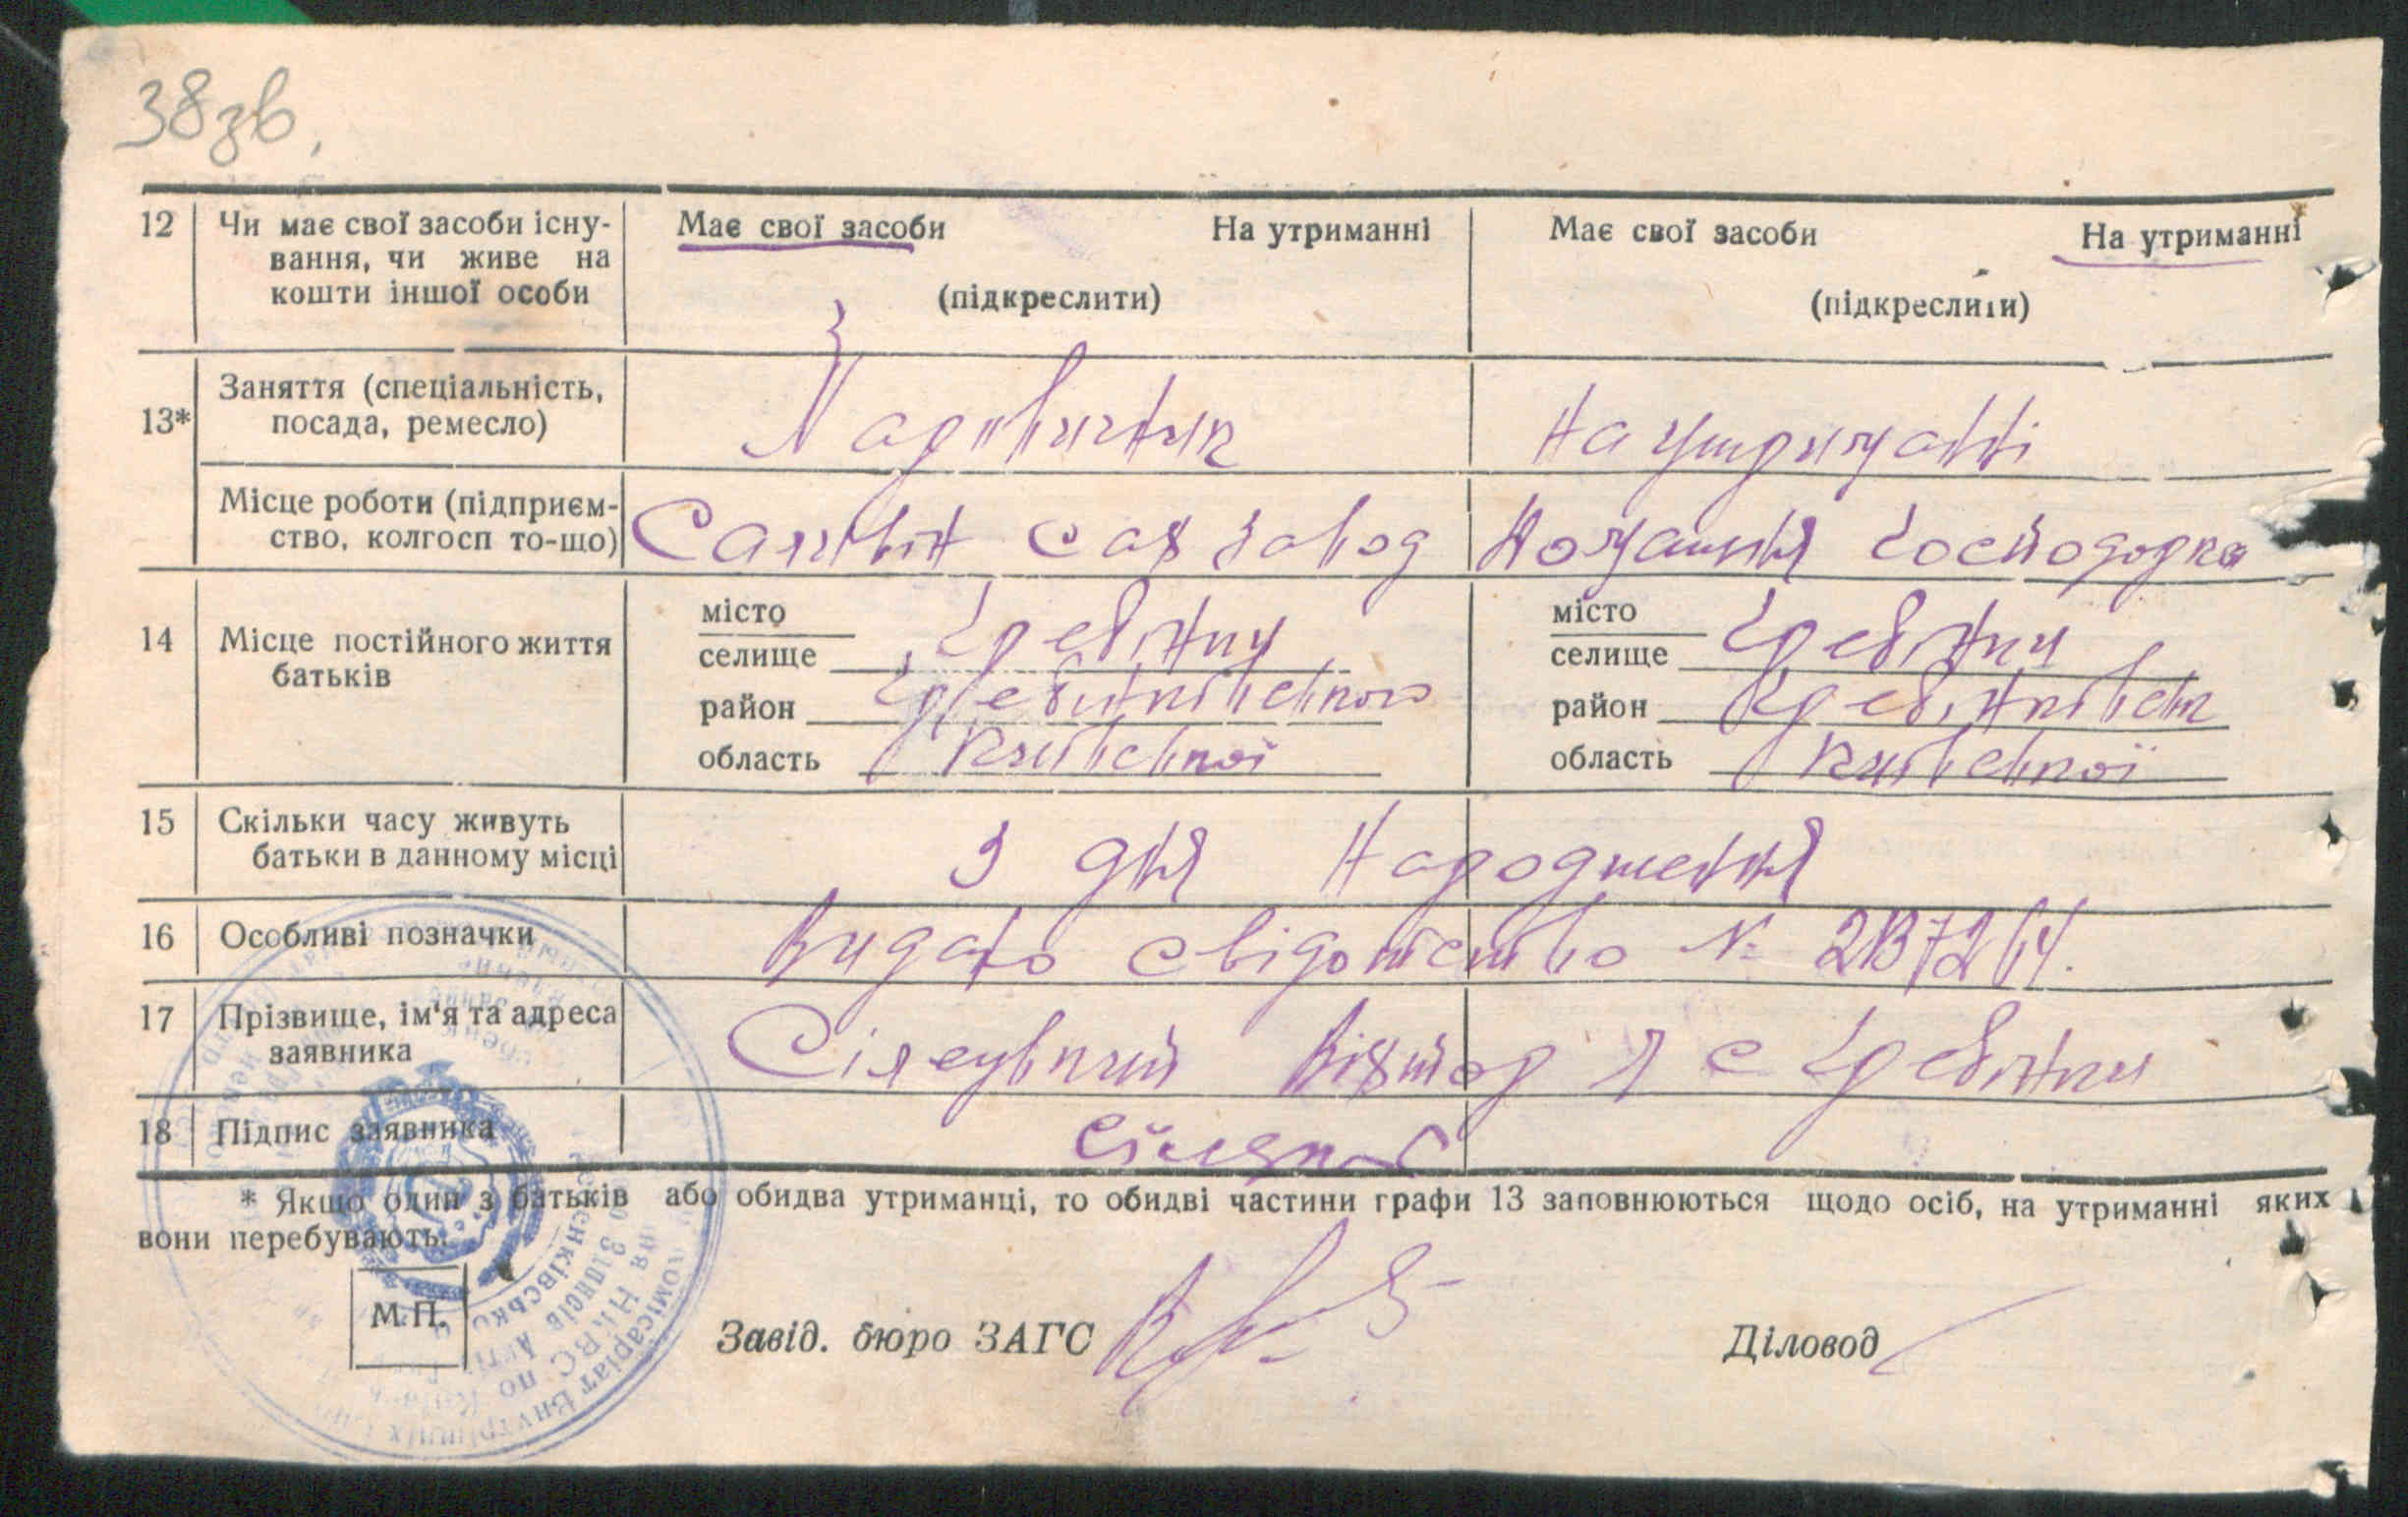 38зв.
12 Чи має свої засоби існу- Має свої засоби На утриманні Має свої засоби На утриманні
вання, чи живе на
кошти іншої особи (підкреслити) (підкреслити)
Заняття (спеціальність,
13* посада, ремесло) На утриманні
Місце роботи (підприєм-
ство, колгосп то-що) сах завод Домашня господорка
14 Місце постійного життя місто Гребінки місто Гребінки
батьків селище селище
район Гребінківського район Гребінківськ
область Київської область Київської
15 Скільки часу живуть
батьки в данному місці З дня народження
16 Особливі позначки Видано свідотство №
17 Прізвище, ім'я та адреса
заявника Віктор Я с Гребінки
18 Підпис заявника
* Якщо один з батьків або обидва утриманці, то обидві частини графи 13 заповнюються щодо осіб, на утриманні яких
вони перебувають.
М.П. Завід. бюро ЗАГС Діловод